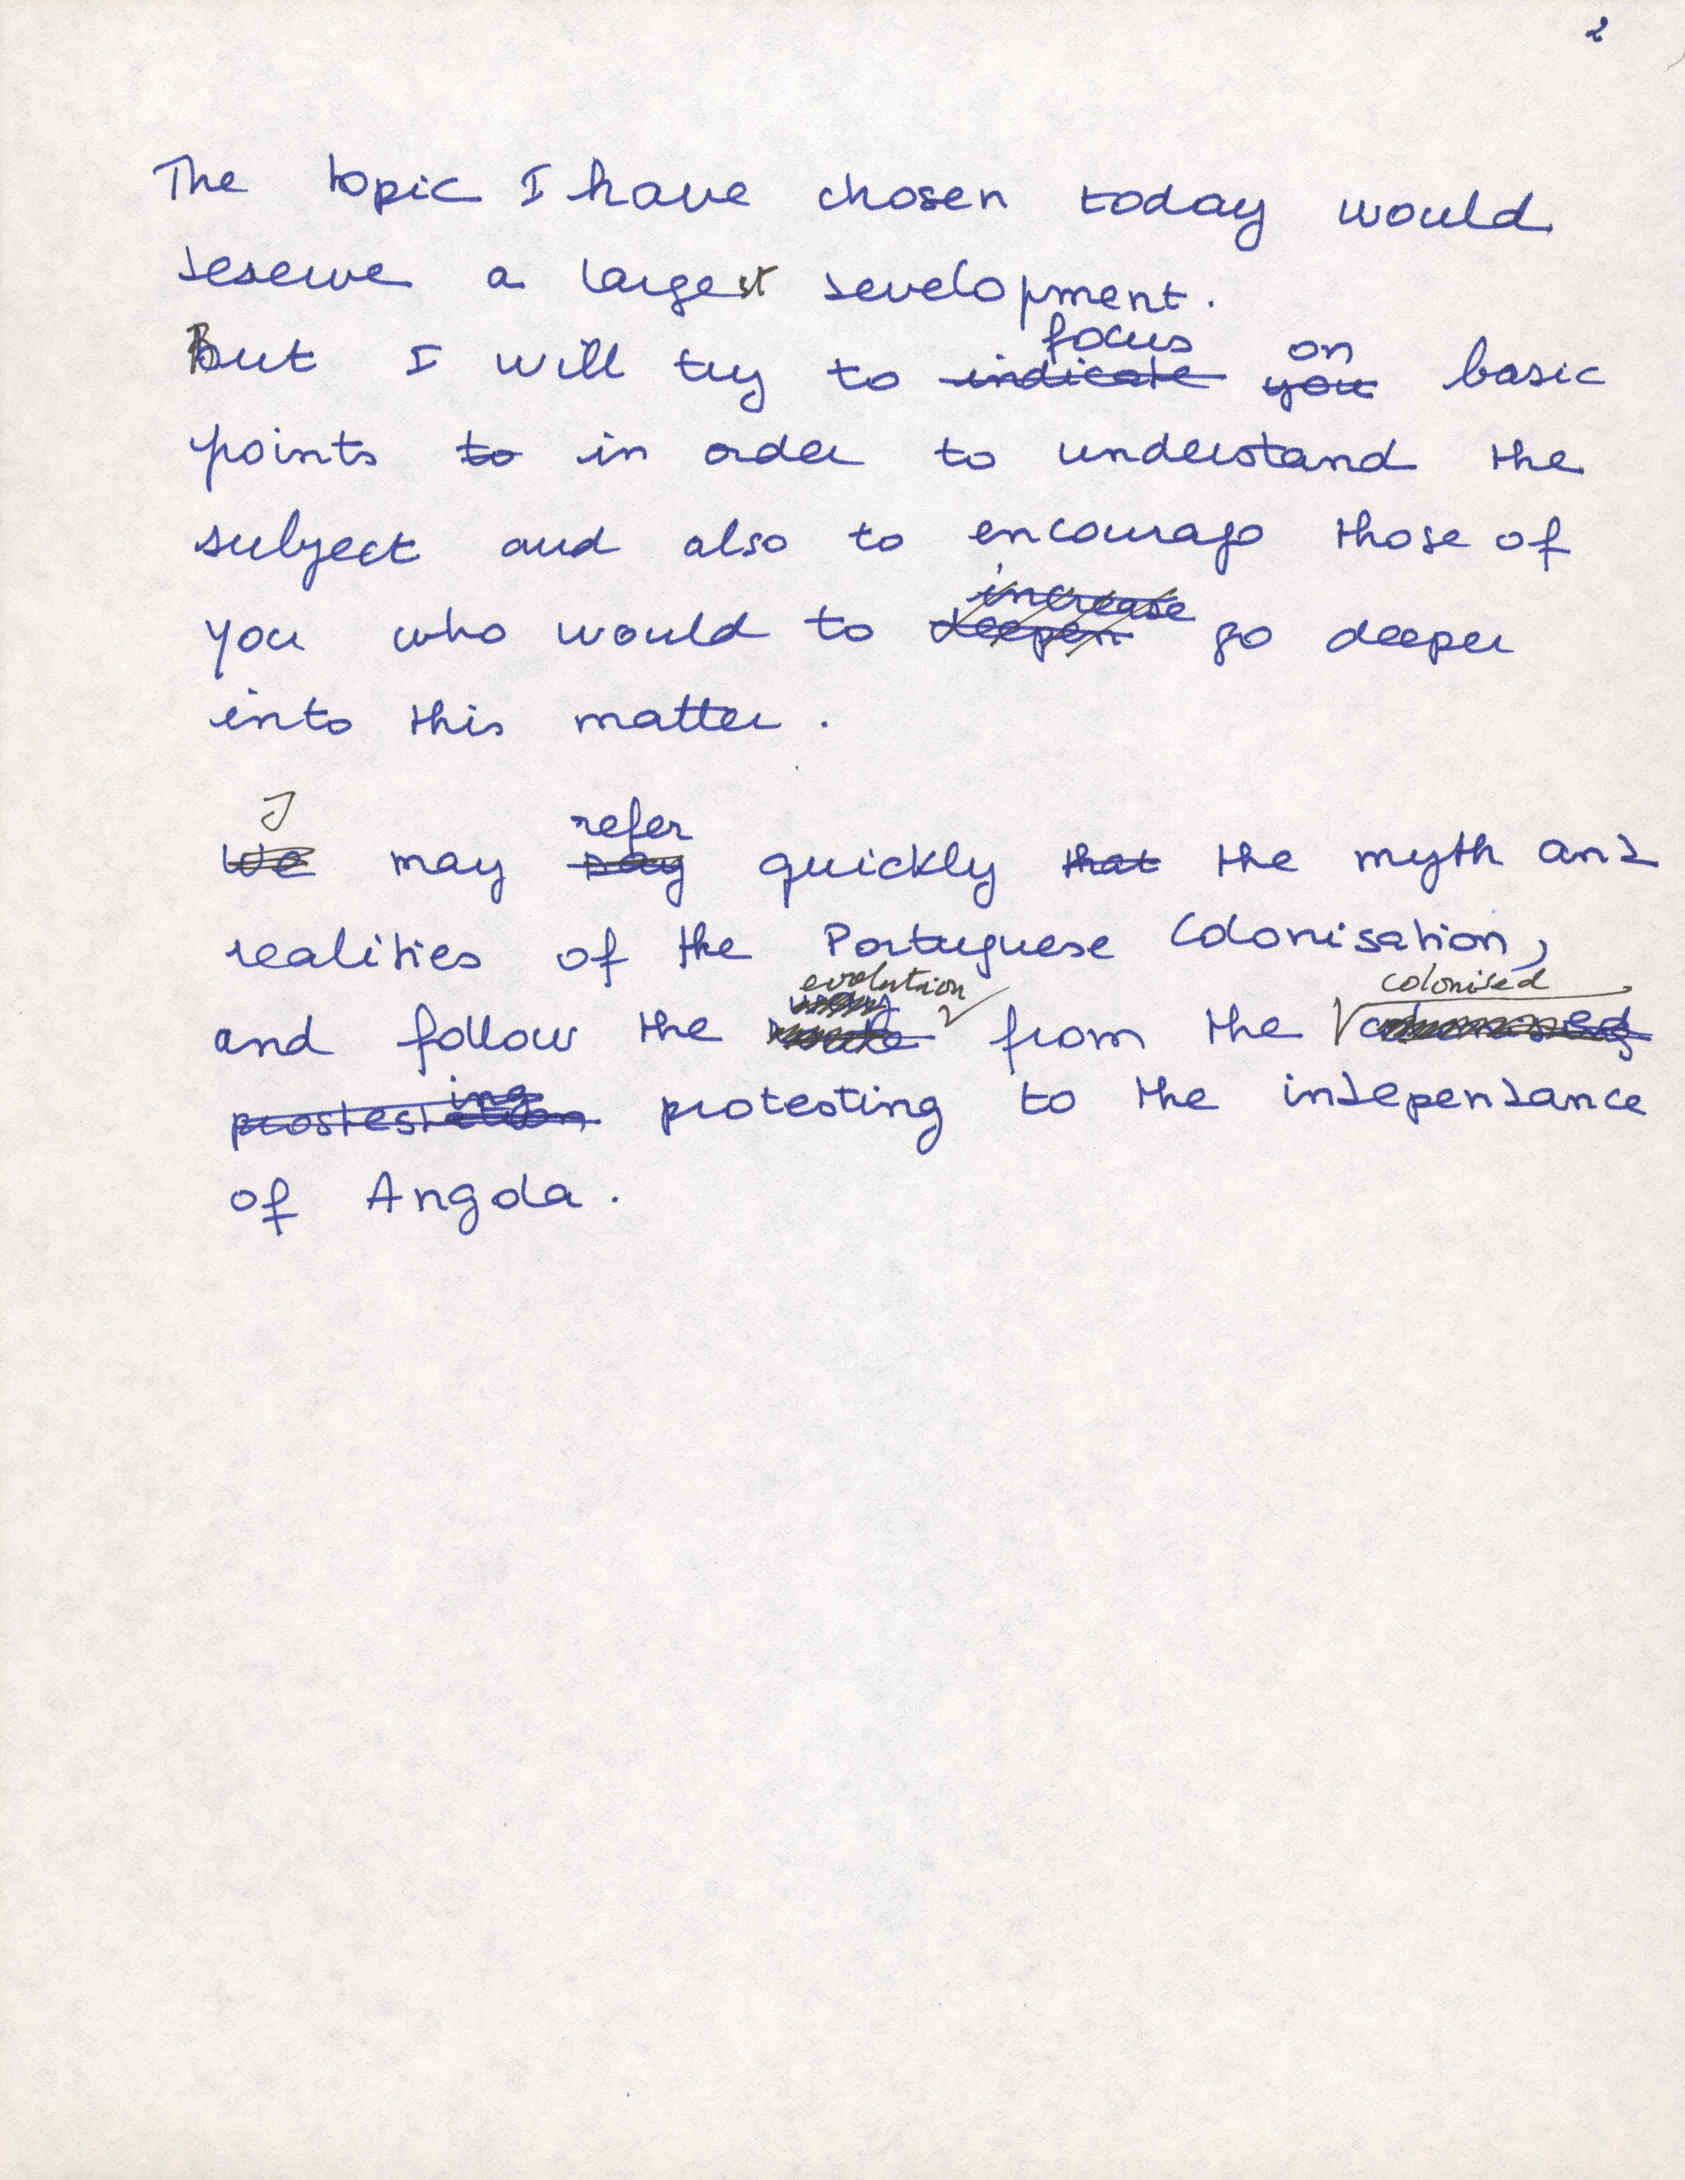 2
The topic I have chosen today would
deserve a largest development.
focus on
But I will try to indicate you basic
points to in order to understand the
subject and also to encourage those of
increase
you who would to deepen go deeper
into this matter.
I refer
We may say quickly that the myth and
realities of the Portuguese Colonisation,
evolution colonised
and follow the from the
ing
protesting to the independance
of Angola.